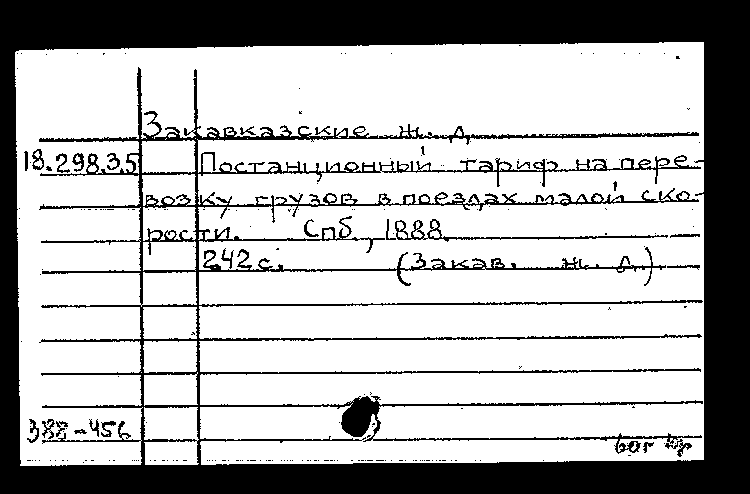 Закавказские ж. д.
18.298.3.5 Постанционный тариф на пере-
возку грузов в поездах малой ско-
рости. Спб., 1888.
242 с. (Закав. ж. д.)
388-456